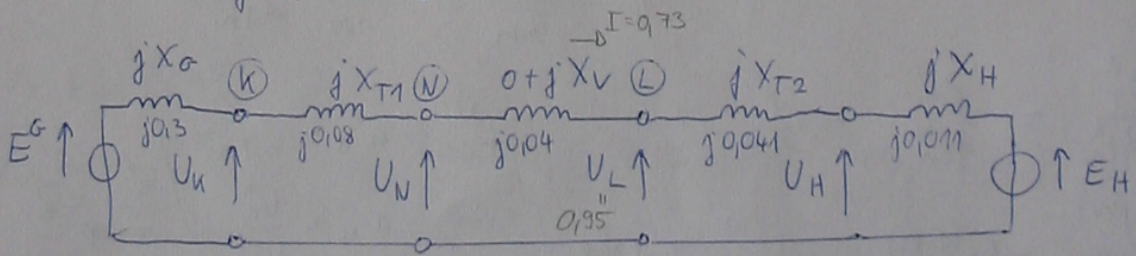 I=0,73
jX_G K jX_T1 N 0+jX_V L jX_T2 jX_H
j0,3 j0,08 j0,04 j0,041 j0,011
E^G U_K U_N U_L U_H E_H
"
0,95